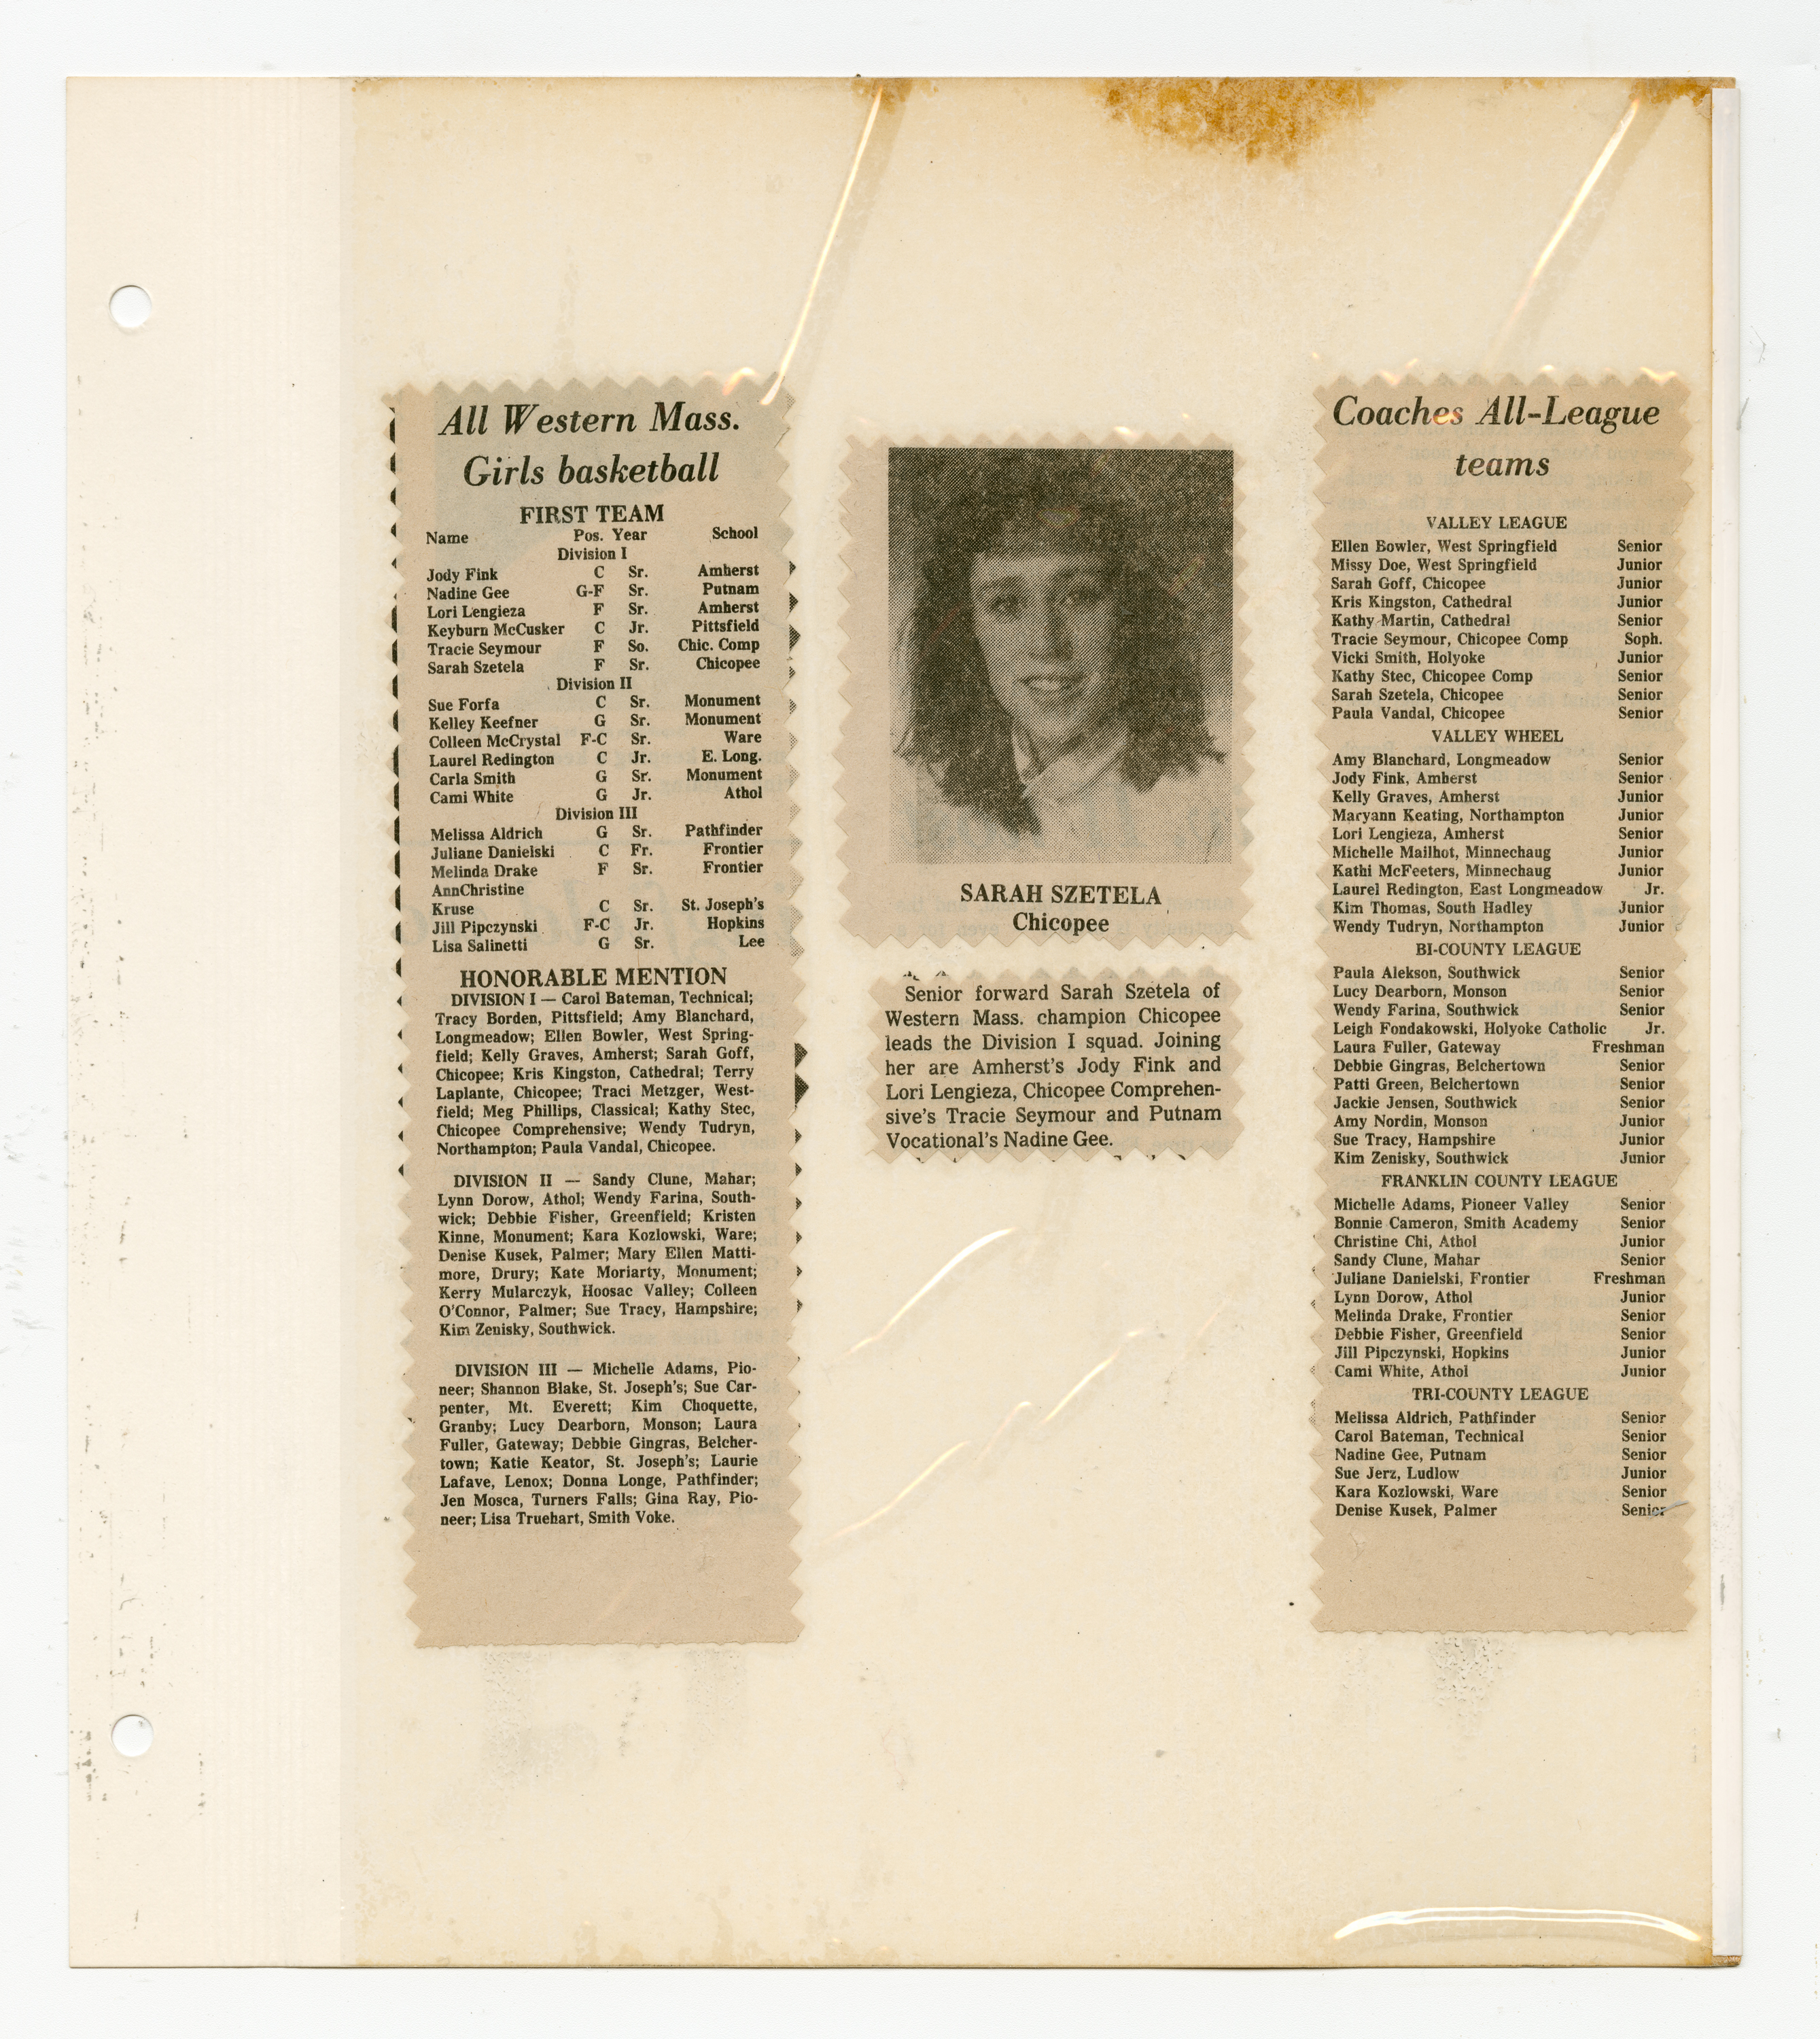 All Western Mass.
Girls basketball
FIRST TEAM
Name Pos. Year School
Division I
Jody Fink C Sr. Amherst
Nadine Gee G-F Sr. Putnam
Lori Lengieza F Sr. Amherst
Keyburn McCusker C Jr. Pittsfield
Tracie Seymour F So. Chic. Comp
Sarah Szetela F Sr. Chicopee
Division II
Sue Forfa C Sr. Monument
Kelley Keefner G Sr. Monument
Colleen McCrystal F-C Sr. Ware
Laurel Redington C Jr. E. Long.
Carla Smith G Sr. Monument
Cami White G Jr. Athol
Division III
Melissa Aldrich G Sr. Pathfinder
Juliane Danielski C Fr. Frontier
Melinda Drake F Sr. Frontier
AnnChristine
Kruse C Sr. St. Joseph's
Jill Pipczynski F-C Jr. Hopkins
Lisa Salinetti G Sr. Lee
HONORABLE MENTION
DIVISION I — Carol Bateman, Technical;
Tracy Borden, Pittsfield; Amy Blanchard,
Longmeadow; Ellen Bowler, West Spring-
field; Kelly Graves, Amherst; Sarah Goff,
Chicopee; Kris Kingston, Cathedral; Terry
Laplante, Chicopee; Traci Metzger, West-
field; Meg Phillips, Classical; Kathy Stec,
Chicopee Comprehensive; Wendy Tudryn,
Northampton; Paula Vandal, Chicopee.
DIVISION II — Sandy Clune, Mahar;
Lynn Dorow, Athol; Wendy Farina, South-
wick; Debbie Fisher, Greenfield; Kristen
Kinne, Monument; Kara Kozlowski, Ware;
Denise Kusek, Palmer; Mary Ellen Matti-
more, Drury; Kate Moriarty, Monument;
Kerry Mularczyk, Hoosac Valley; Colleen
O'Connor, Palmer; Sue Tracy, Hampshire;
Kim Zenisky, Southwick.
DIVISION III — Michelle Adams, Pio-
neer; Shannon Blake, St. Joseph's; Sue Car-
penter, Mt. Everett; Kim Choquette,
Granby; Lucy Dearborn, Monson; Laura
Fuller, Gateway; Debbie Gingras, Belcher-
town; Katie Keator, St. Joseph's; Laurie
Lafave, Lenox; Donna Longe, Pathfinder;
Jen Mosca, Turners Falls; Gina Ray, Pio-
neer; Lisa Truehart, Smith Voke.
SARAH SZETELA
Chicopee
Senior forward Sarah Szetela of
Western Mass. champion Chicopee
leads the Division I squad. Joining
her are Amherst's Jody Fink and
Lori Lengieza, Chicopee Comprehen-
sive's Tracie Seymour and Putnam
Vocational's Nadine Gee.
Coaches All-League
teams
VALLEY LEAGUE
Ellen Bowler, West Springfield Senior
Missy Doe, West Springfield Junior
Sarah Goff, Chicopee Junior
Kris Kingston, Cathedral Junior
Kathy Martin, Cathedral Senior
Tracie Seymour, Chicopee Comp Soph.
Vicki Smith, Holyoke Junior
Kathy Stec, Chicopee Comp Senior
Sarah Szetela, Chicopee Senior
Paula Vandal, Chicopee Senior
VALLEY WHEEL
Amy Blanchard, Longmeadow Senior
Jody Fink, Amherst Senior
Kelly Graves, Amherst Junior
Maryann Keating, Northampton Junior
Lori Lengieza, Amherst Senior
Michelle Mailhot, Minnechaug Junior
Kathi McFeeters, Minnechaug Junior
Laurel Redington, East Longmeadow Jr.
Kim Thomas, South Hadley Junior
Wendy Tudryn, Northampton Junior
BI-COUNTY LEAGUE
Paula Alekson, Southwick Senior
Lucy Dearborn, Monson Senior
Wendy Farina, Southwick Senior
Leigh Fondakowski, Holyoke Catholic Jr.
Laura Fuller, Gateway Freshman
Debbie Gingras, Belchertown Senior
Patti Green, Belchertown Senior
Jackie Jensen, Southwick Senior
Amy Nordin, Monson Junior
Sue Tracy, Hampshire Junior
Kim Zenisky, Southwick Junior
FRANKLIN COUNTY LEAGUE
Michelle Adams, Pioneer Valley Senior
Bonnie Cameron, Smith Academy Senior
Christine Chi, Athol Junior
Sandy Clune, Mahar Senior
Juliane Danielski, Frontier Freshman
Lynn Dorow, Athol Junior
Melinda Drake, Frontier Senior
Debbie Fisher, Greenfield Senior
Jill Pipczynski, Hopkins Junior
Cami White, Athol Junior
TRI-COUNTY LEAGUE
Melissa Aldrich, Pathfinder Senior
Carol Bateman, Technical Senior
Nadine Gee, Putnam Senior
Sue Jerz, Ludlow Junior
Kara Kozlowski, Ware Senior
Denise Kusek, Palmer Senior